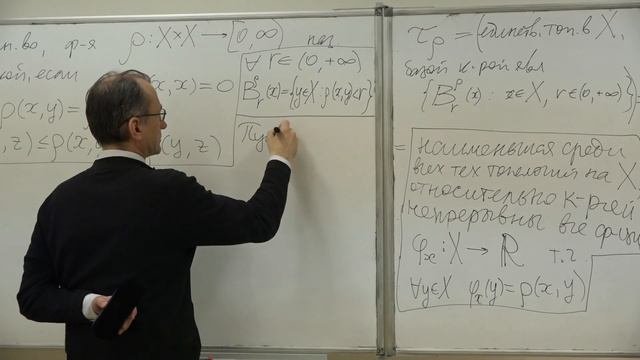 п.во, ф-я ρ: X×X → [0,∞) наз
кой, если (x,x)=0
ρ(x,y)=
,z) ≤ ρ(x, (y,z)
∀ r∈(0,+∞)
B_r^ρ(x)={y∈X: ρ(x,y)<r}
Пу
τ_ρ = (единств. топ. в X,
базой к-рой явл
{B_r^ρ(x): x∈X, r∈(0,+∞)})
= наименьшая среди
всех тех топологий на X
относительно к-рой
непрерывны все ф-ции
φ_x: X → ℝ т.ч.
∀y∈X φ_x(y)=ρ(x,y)